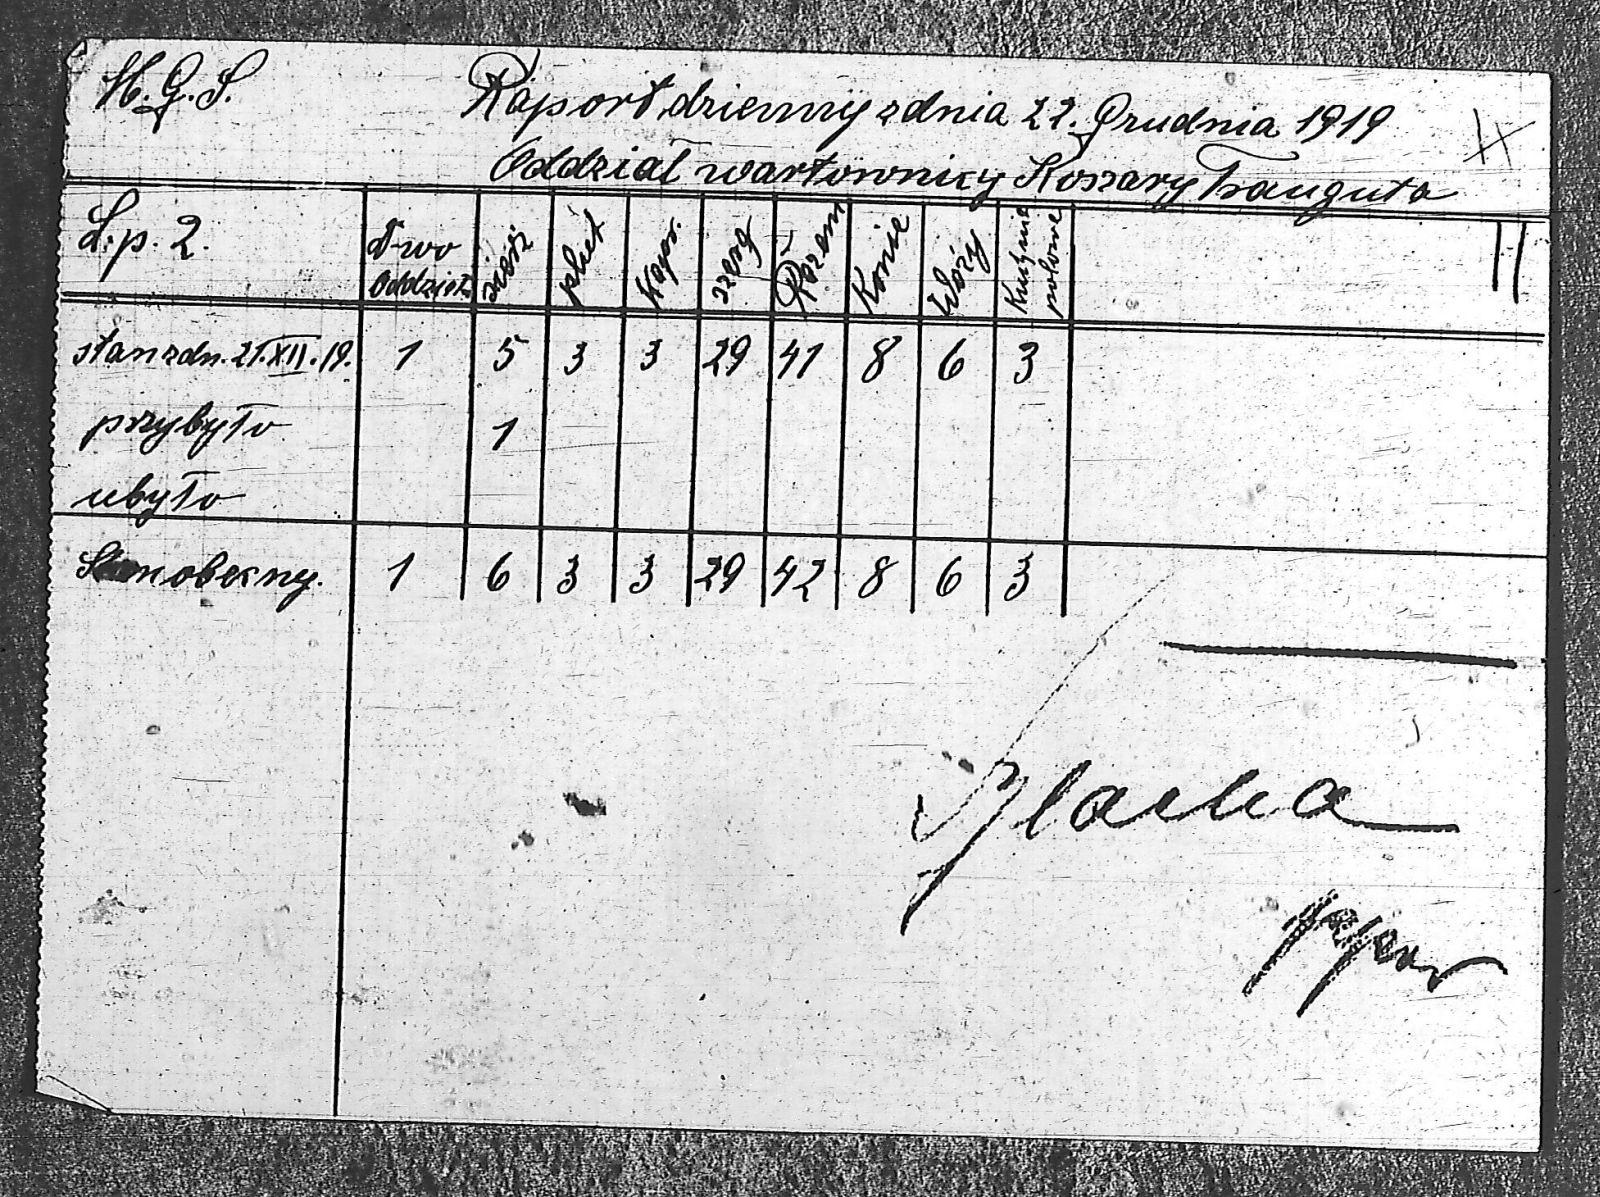 H. G. S.
Raport dzienny z dnia 22. Grudnia 1919
Oddział wartowniczy Koszary Trauguta
L.p. 2. D-wo Oddziału sierż plut Kapr. szereg Razem Konie Wózy Kuchnie polowe II
stan z dn. 21. XII. 19. 1 5 3 3 29 41 8 6 3
przybyło 1
ubyło
Stan obecny. 1 6 3 3 29 42 8 6 3
ppor